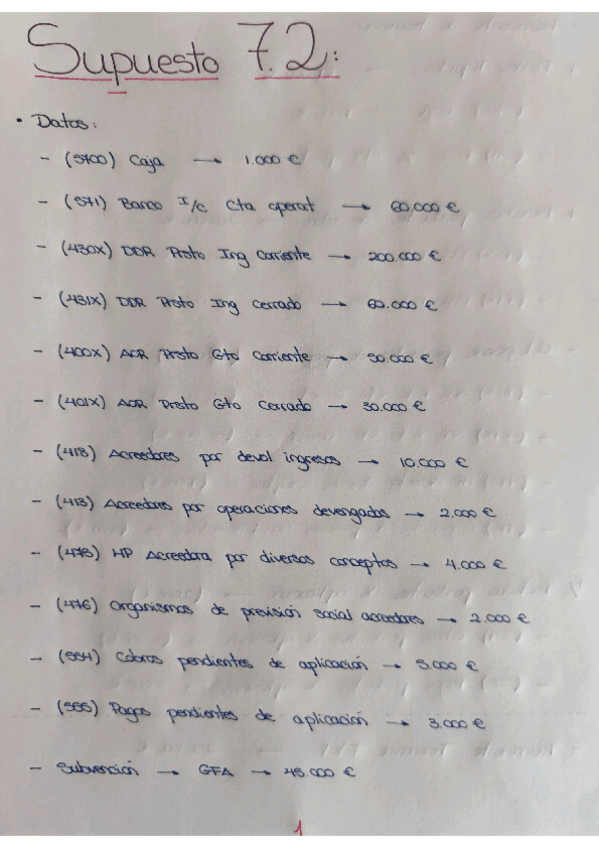 Supuesto 7.2:
• Datos:
- (5700) Caja → 1.000 €
- (571) Banco I/c Cta operat → 60.000 €
- (430X) DDR Ppsto Ing Corriente → 200.000 €
- (431X) DDR Ppsto Ing cerrado → 60.000 €
- (400X) AOR Ppsto Gto Corriente → 50.000 €
- (401X) AOR Ppsto Gto Cerrado → 30.000 €
- (418) Acreedores por devol ingresos → 10.000 €
- (413) Acreedores por operaciones devengadas → 2.000 €
- (475) HP Acreedora por diversos conceptos → 4.000 €
- (476) Organismos de previsión social acreedores → 2.000 €
- (554) Cobros pendientes de aplicación → 5.000 €
- (555) Pagos pendientes de aplicación → 3.000 €
- Subvención → GFA → 45.000 €
1